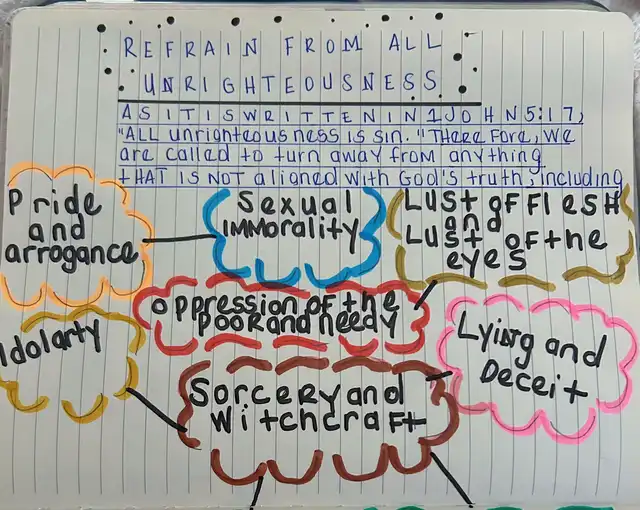 REFRAIN FROM ALL
UNRIGHTEOUSNESS
AS IT IS WRITTEN IN 1 JOHN 5:17,
"ALL unrighteousness is sin." THERE FORE, WE
are called to turn away from anything
tHAT is NOt aligned with God's truth, including
Pride
and
arrogance
Sexual
IMMorality
LUST OF FlESH
and
LUST OF the
eyes
oppression of the
POOR and needy
Idolarty
Lying and
Deceit
SORCERY and
Witchcraft